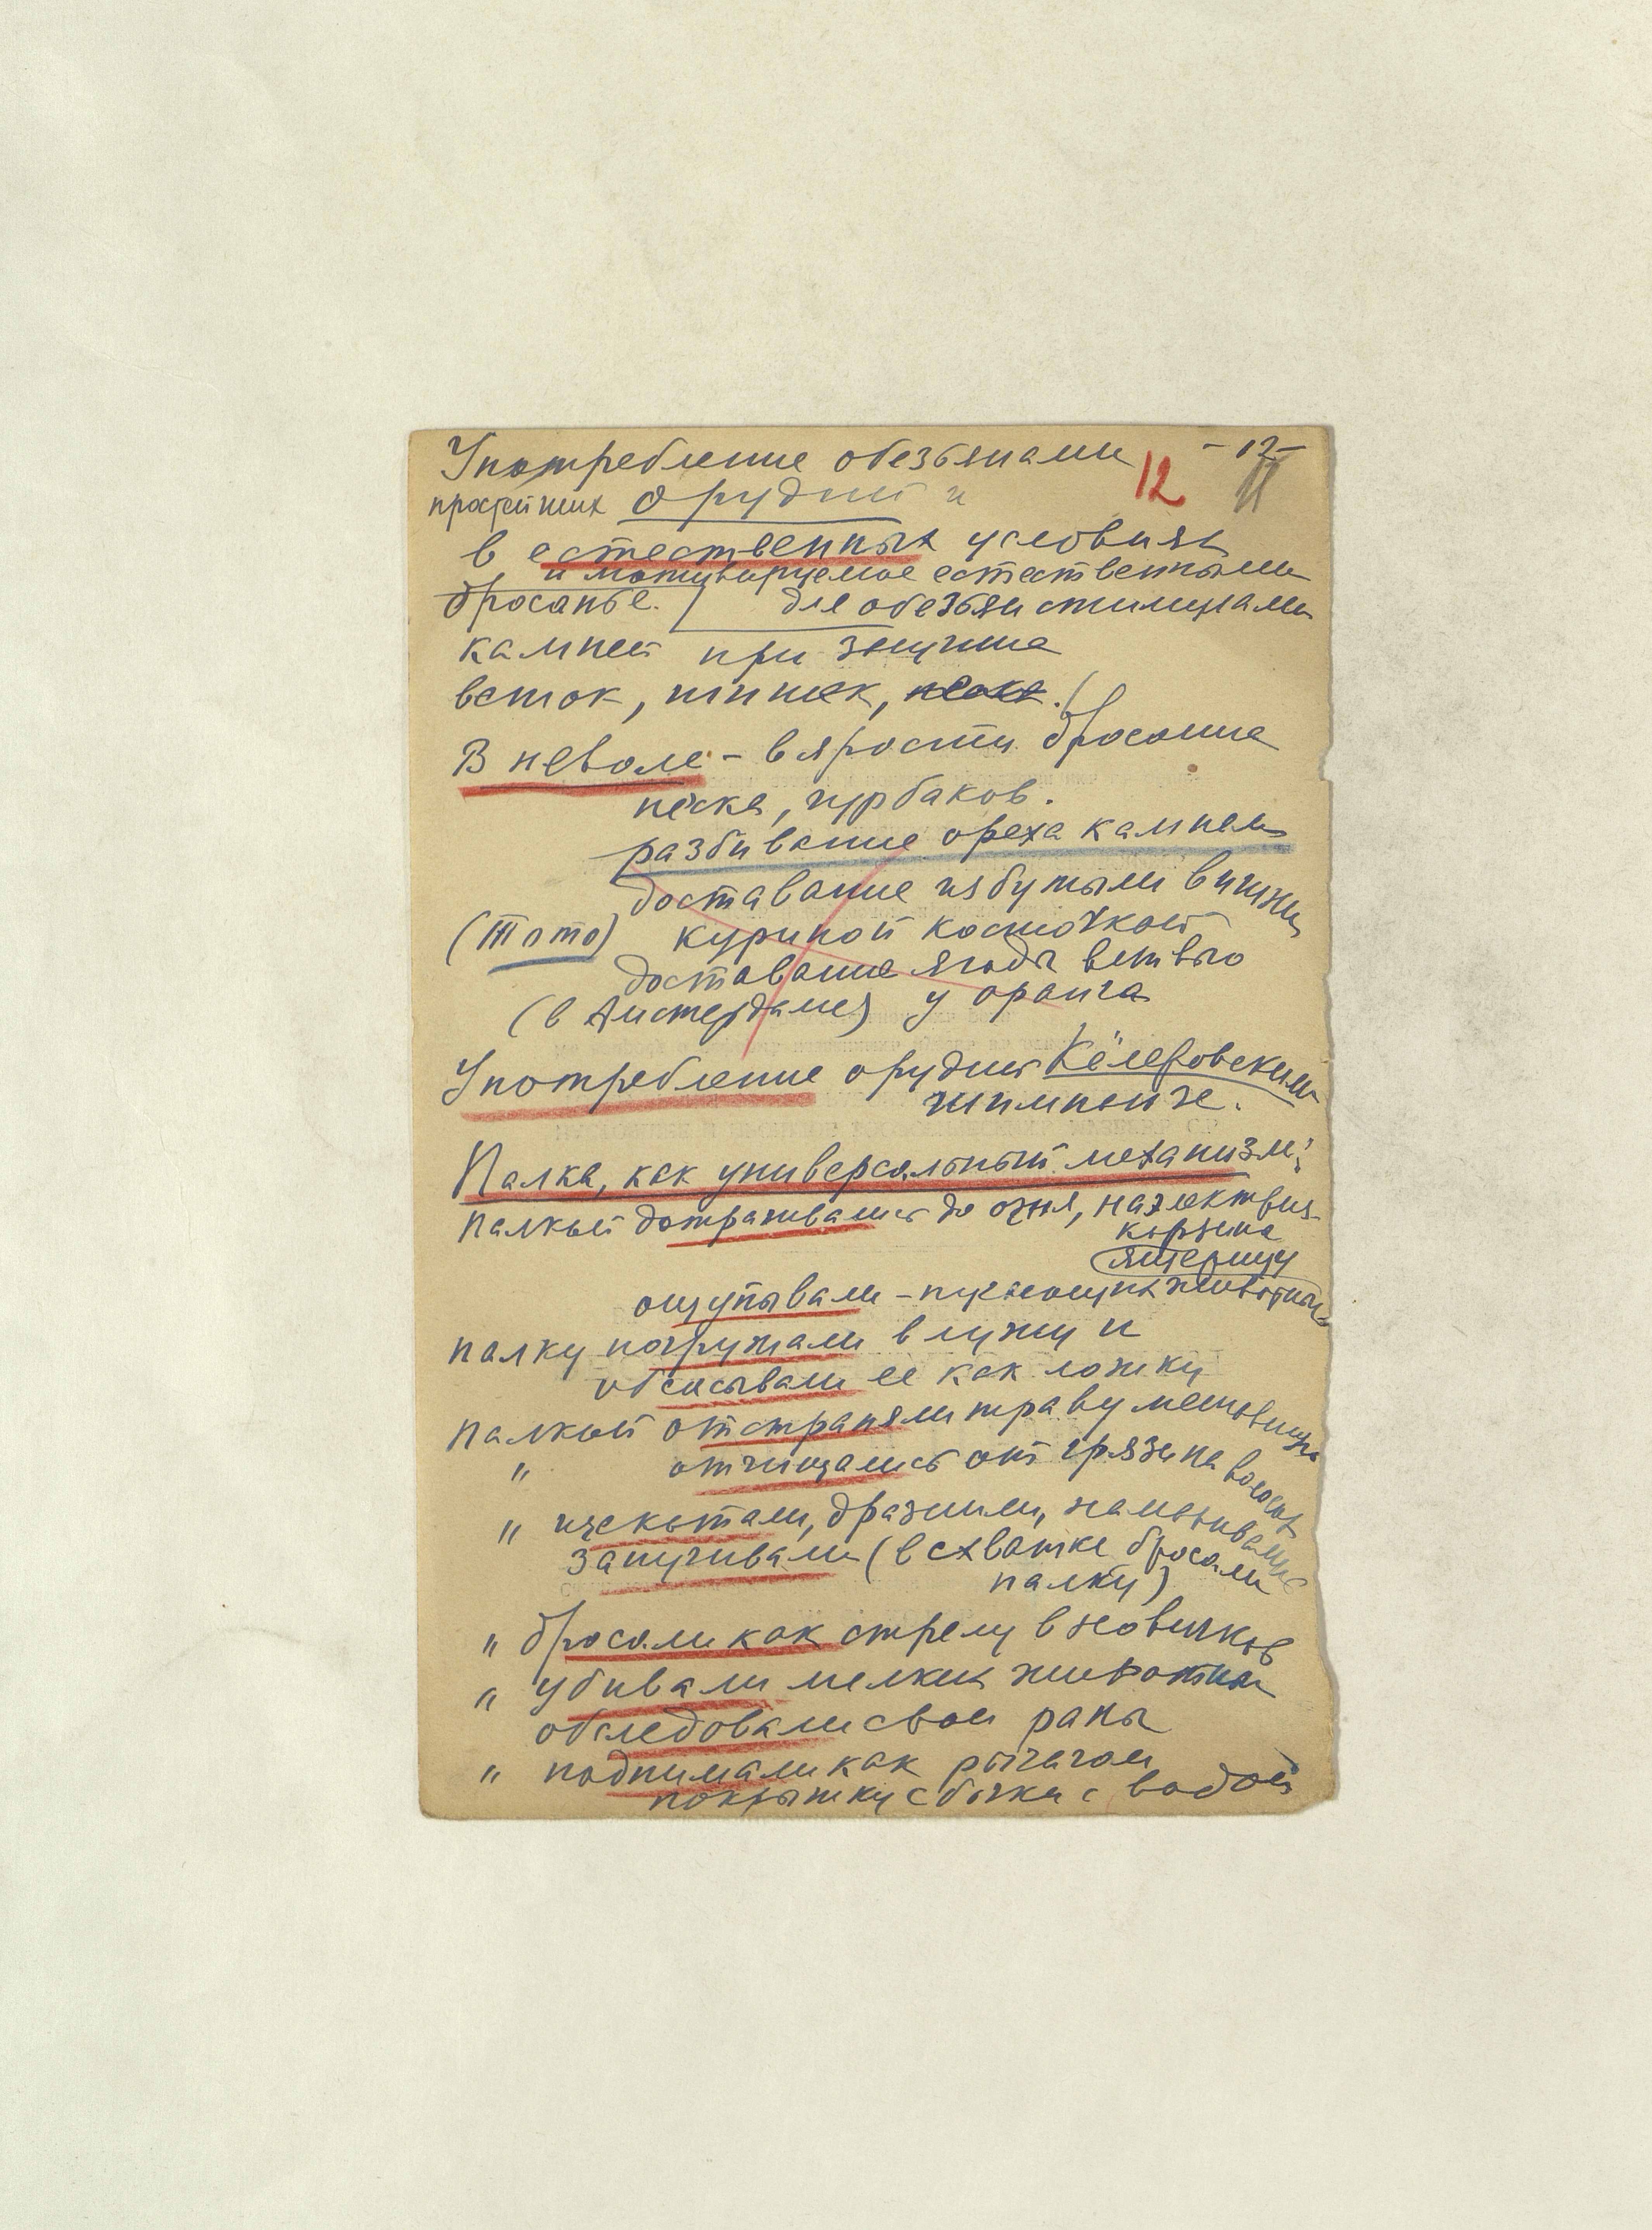 Употребление обезьянами -12-
12 11
простейших орудий и
в естественных условиях
и мотивируемое естественными
бросанье. для обезьян стимулами
камней при защите
веток, шишек, песка.
В неволе - в ярости бросание
песка, чурбаков.
разбивание ореха камнем
доставание из бутыли вишни
(Тото) куриной косточкой
доставание ягоды ветвью
(в Амстердаме) у оранга
Употребление орудия Кёлеровскими
шимпанзе.
Палка, как универсальный механизм:
Палкой дотрагивались до огня, на электриз.
корзина
ящерицу
ощупывали - животных
палку погружали в лужу и
обсасывали ее как ложку
Палкой отстраняли траву
" отчищались от грязи на волосах
" щекотали, дразнили,
запугивали (в схватке бросали
палку)
" бросали как стрелу в новичков
" убивали мелких животных
обследовали свои раны
" поднимали как рычагом
покрышку с бочки с водой